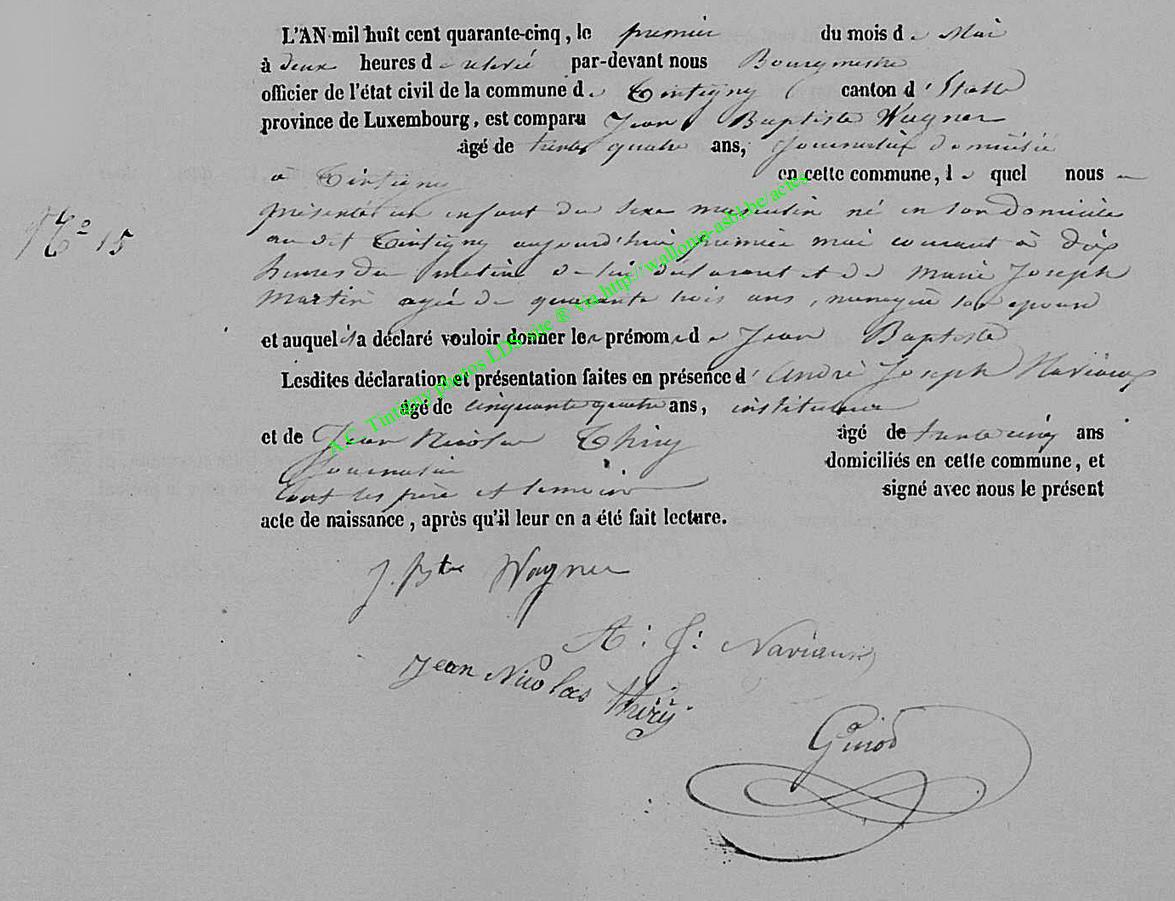 L'AN mil huit cent quarante-cinq, le premier du mois de Mai
à deux heures de relevé par-devant nous Bourgmestre
officier de l'état civil de la commune de Tintigny canton d'Etalle
province de Luxembourg, est comparu Jean Baptiste Wagner
âgé de trente quatre ans, Journalier domicilié
à Tintigny en cette commune, le quel nous a
N° 15
présenté un enfant du sexe masculin né en son domicile
au dit Tintigny aujourd'hui premier mai courant à dix
heures du matin de lui déclarant et de Marie Joseph
Martin agée de quarante trois ans, menagere son epouse
et auquel il a déclaré vouloir donner les prénoms de Jean Baptiste
Lesdites déclaration et présentation faites en présence d'André Joseph Naviaux
âgé de cinquante quatre ans, instituteur
et de Jean Nicolas Thiry âgé de trente cinq ans
Journalier domiciliés en cette commune, et
signé avec nous le présent
acte de naissance, après qu'il leur en a été fait lecture.
J. Bte Wagner
A: J: Naviaux
Jean Nicolas thiry
A.C. Tintigny photos LDS site ® via http://wallonia-asbl.be/actes